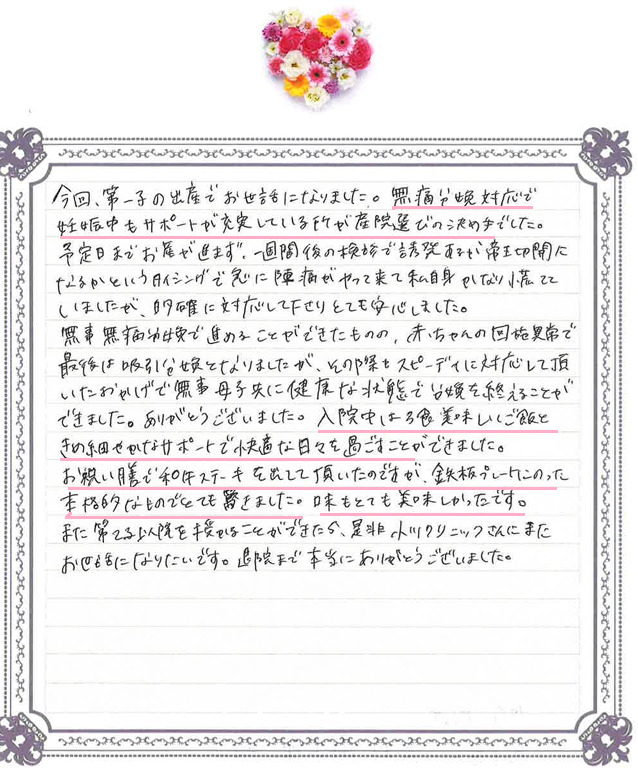 今回、第一子の出産でお世話になりました。無痛分娩対応で
妊娠中もサポートが充実している所が産院選びの決め手でした。
予定日までお産が進まず、一週間後の検診で誘発するか帝王切開に
なるかというタイミングで急に陣痛がやって来て私自身かなり慌てて
しまいましたが、的確に対応して下さりとても安心しました。
無事無痛分娩で進めることができたものの、赤ちゃんの回旋異常で
最後は吸引分娩となりましたが、その際もスピーディに対応して頂
いたおかげで無事母子共に健康な状態で分娩を終えることが
できました。ありがとうございました。入院中は3食美味しいご飯と
きめ細やかなサポートで快適な日々を過ごすことができました。
お祝い膳で和牛ステーキを出して頂いたのですが、鉄板プレートにのった
本格的なものでとても驚きました。味もとても美味しかったです。
また第2子以降を授かることができたら、是非小川クリニックさんにまた
お世話になりたいです。退院まで本当にありがとうございました。